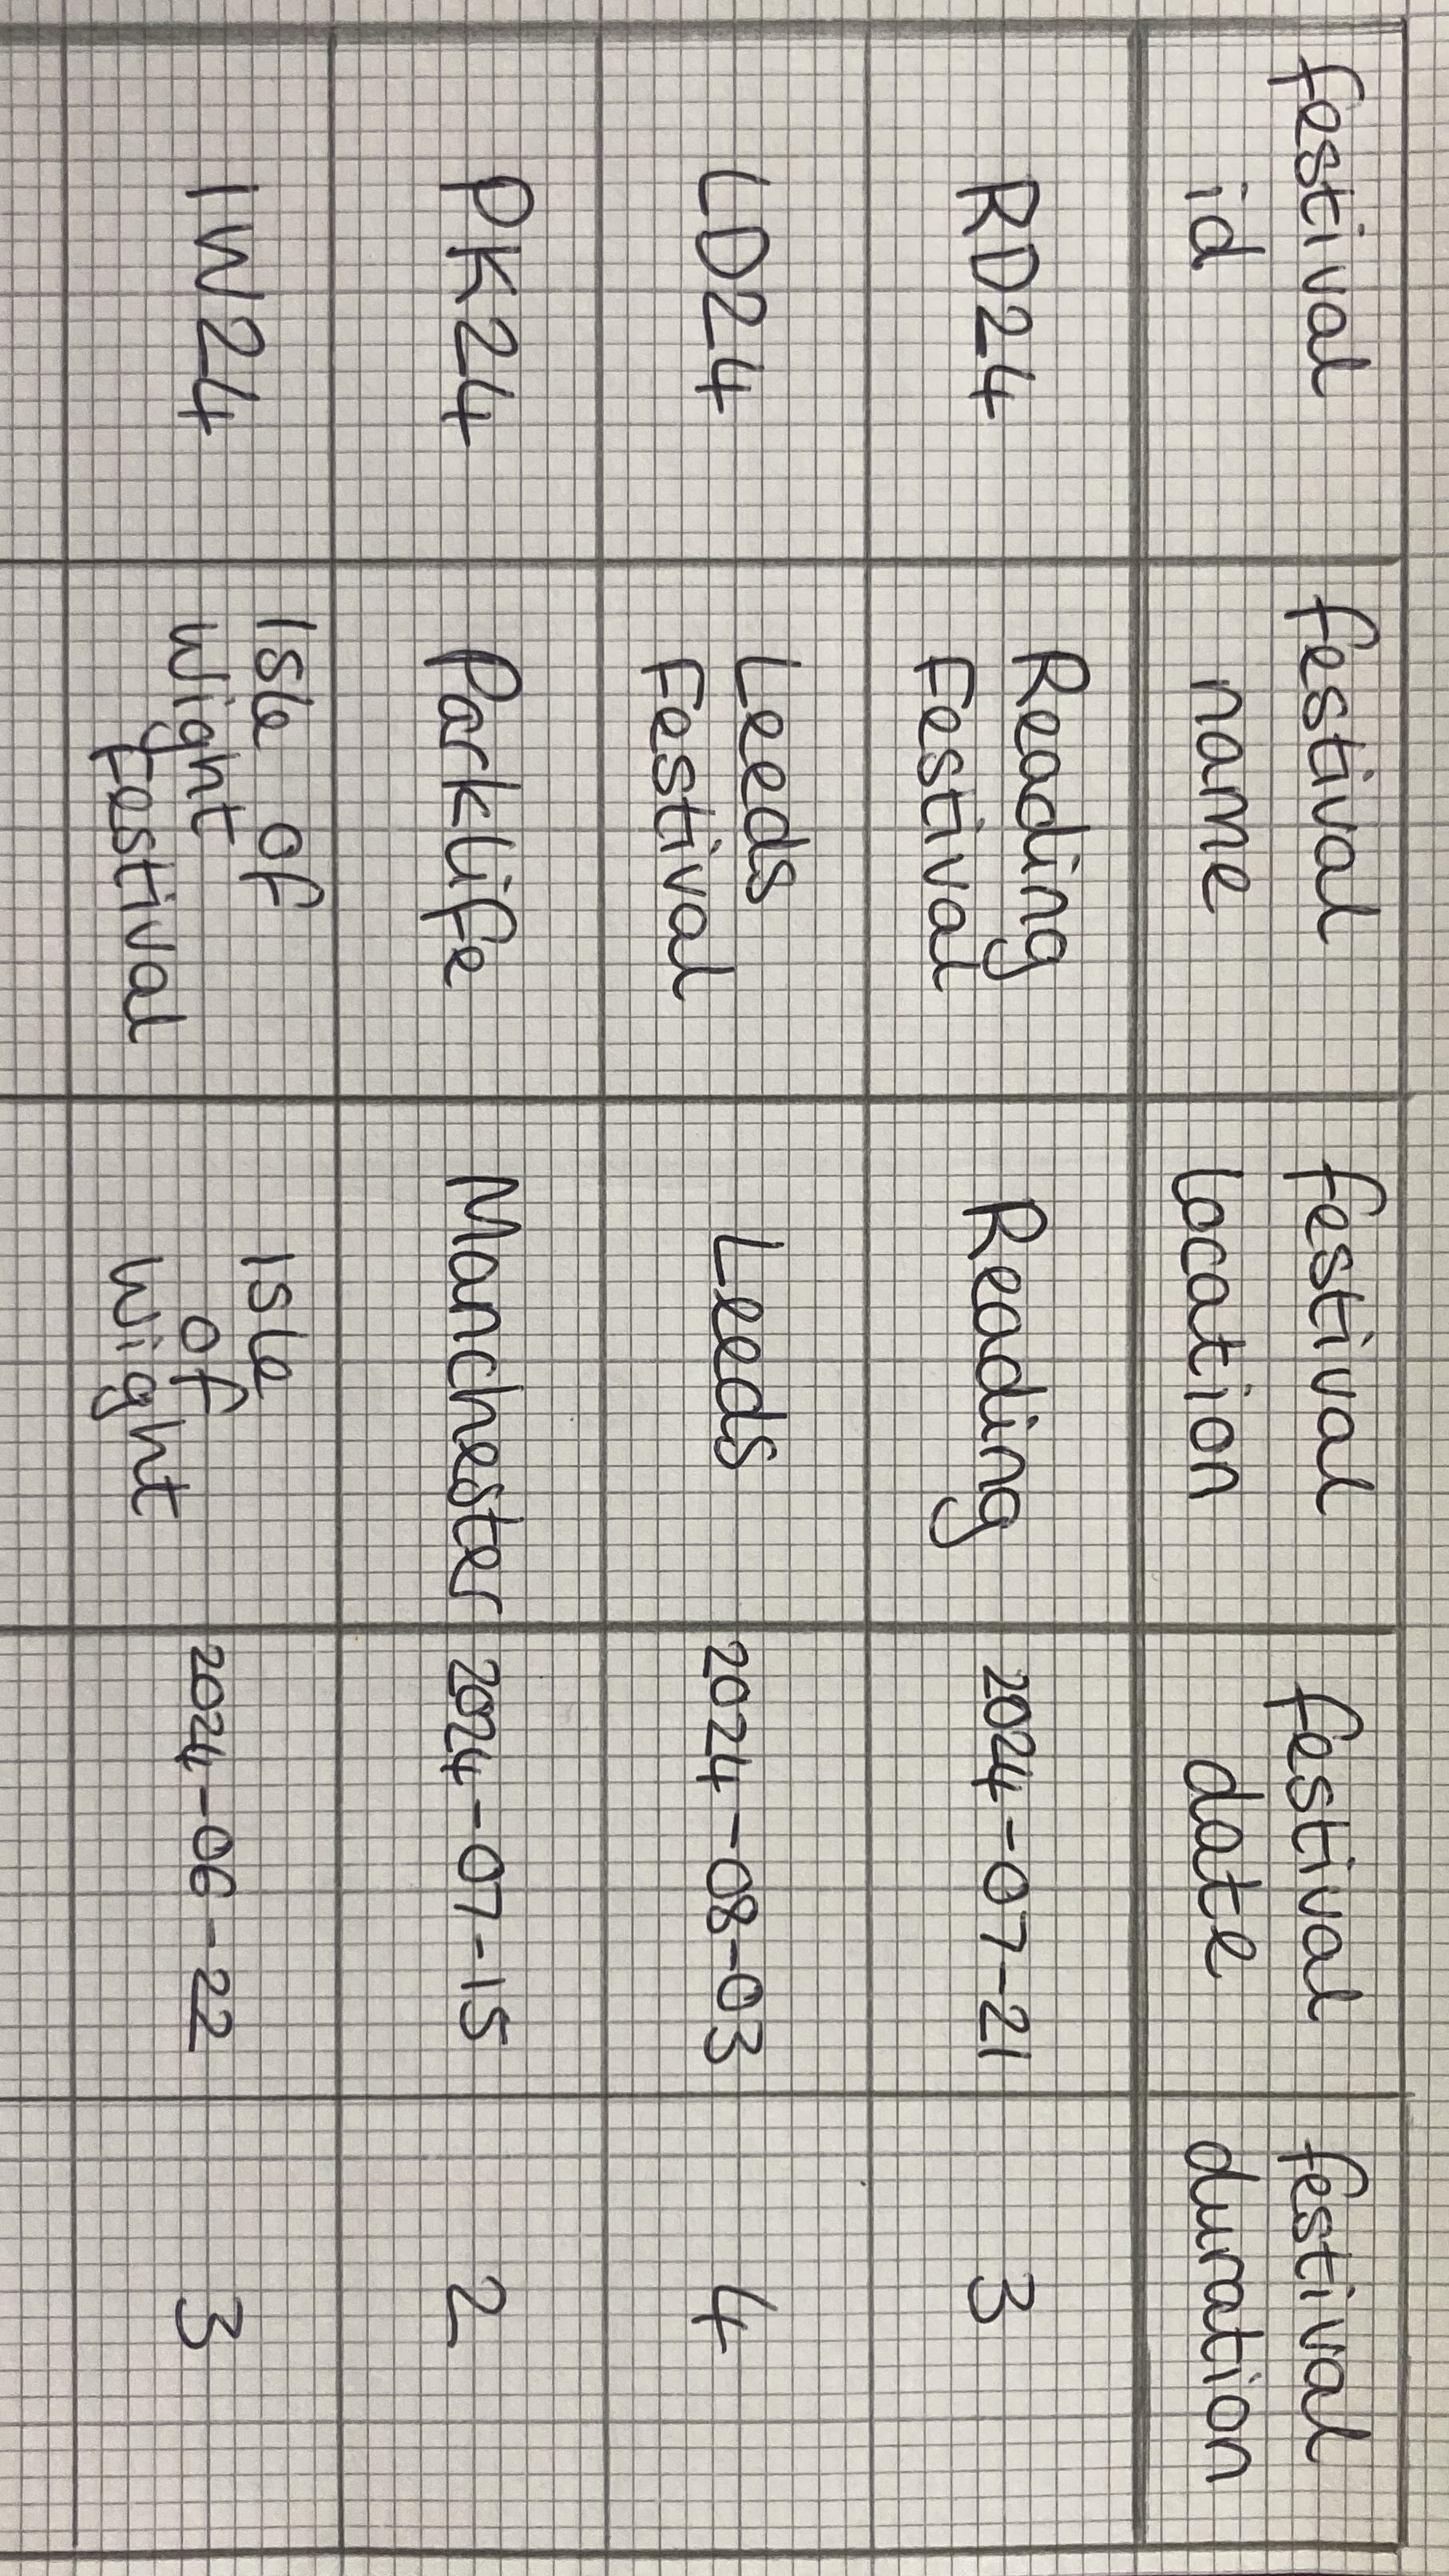 festival id
festival name
festival location
festival date
festival duration
RD24
Reading
Festival
Reading
2024-07-21
3
LD24
Leeds
Festival
Leeds
2024-08-03
4
PK24
Parklife
Manchester
2024-07-15
2
IW24
Isle of
Wight
Festival
Isle
of
Wight
2024-06-22
3